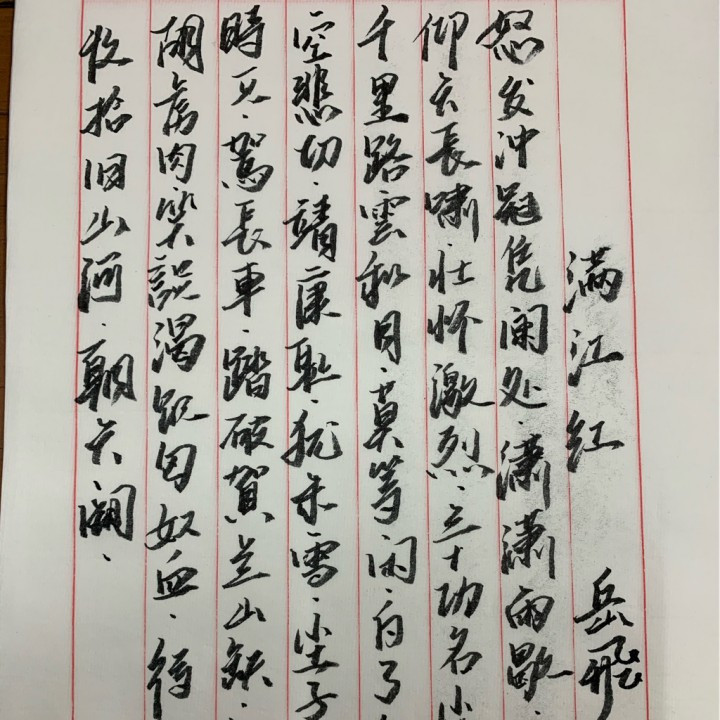 满江红 岳飛
怒发冲冠凭阑处、潇潇雨歇、
仰天長嘯、壮怀激烈、三十功名
千里路雲和月、莫等闲、白了
空悲切、靖康耻、犹未雪、子
時灭、驾長車、踏破賀兰山缺、
胡虏肉笑談渴飲匈奴血、待
收拾旧山河、朝天阙、